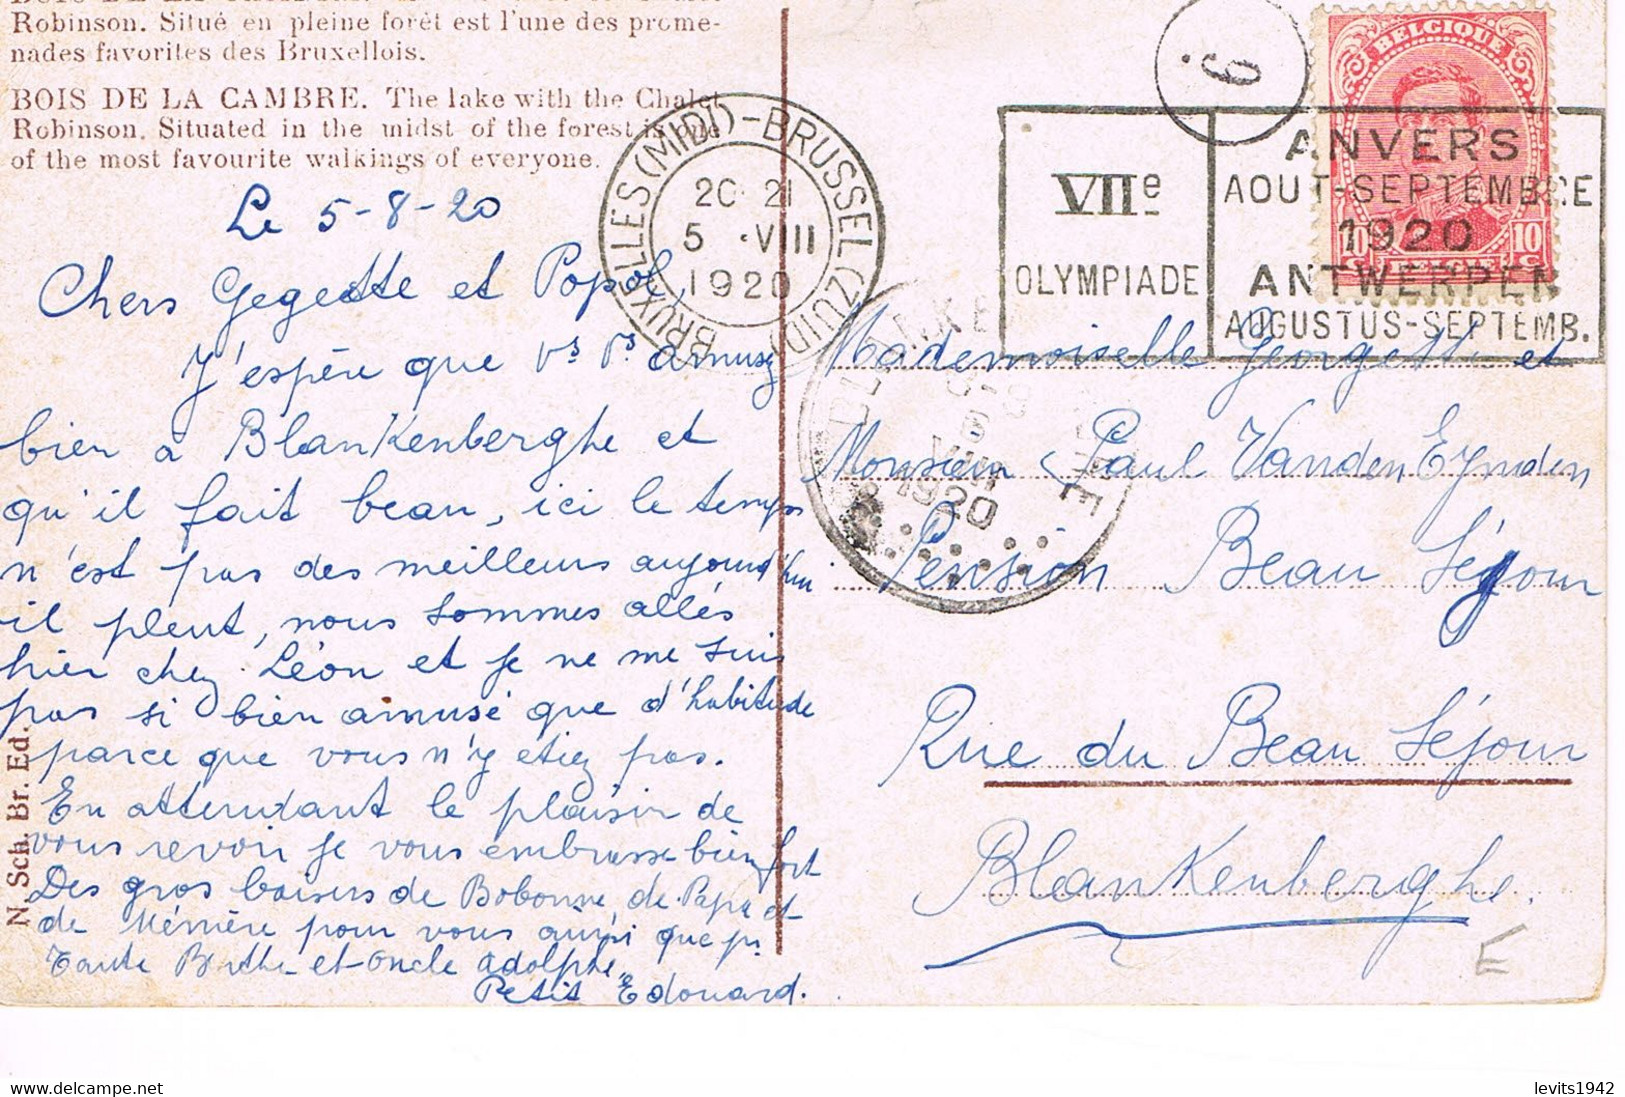 Robinson. Situé en pleine forêt est l'une des prome-
nades favorites des Bruxellois.
BOIS DE LA CAMBRE. The lake with the Chalet
Robinson. Situated in the midst of the forest is one
of the most favourite walkings of everyone.
Le 5-8-20
Chers Gegette et Popol,
J'espère que vs vs amusez
bien à Blankenberghe et
qu'il fait beau, ici le temps
n'est pas des meilleurs aujourd'hui
il pleut, nous sommes allés
hier chez Léon et je ne me suis
pas si bien amusé que d'habitude
parce que vous n'y etiez pas.
En attendant le plaisir de
vous revoir je vous embrasse bien fort
Des gros baisers de Bobonne de Papa et
de Mémère pour vous ainsi que pr
Tante Berthe et Oncle Adolphe.
Petit Edouard.
N. Sch. Br. Ed.
BRUXELLES (MIDI) - BRUSSEL (ZUID)
20 21
5 VIII
1920
6
VIIe
OLYMPIADE
ANVERS
AOUT-SEPTEMBRE
1920
ANTWERPEN
AUGUSTUS-SEPTEMB.
BELGIQUE
10 c 10 c
1920
Mademoiselle Georgette et
Monsieur Paul Vanden Eynden
Pension Beau Séjour
Rue du Beau Séjour
Blankenberghe.
E
levits1942